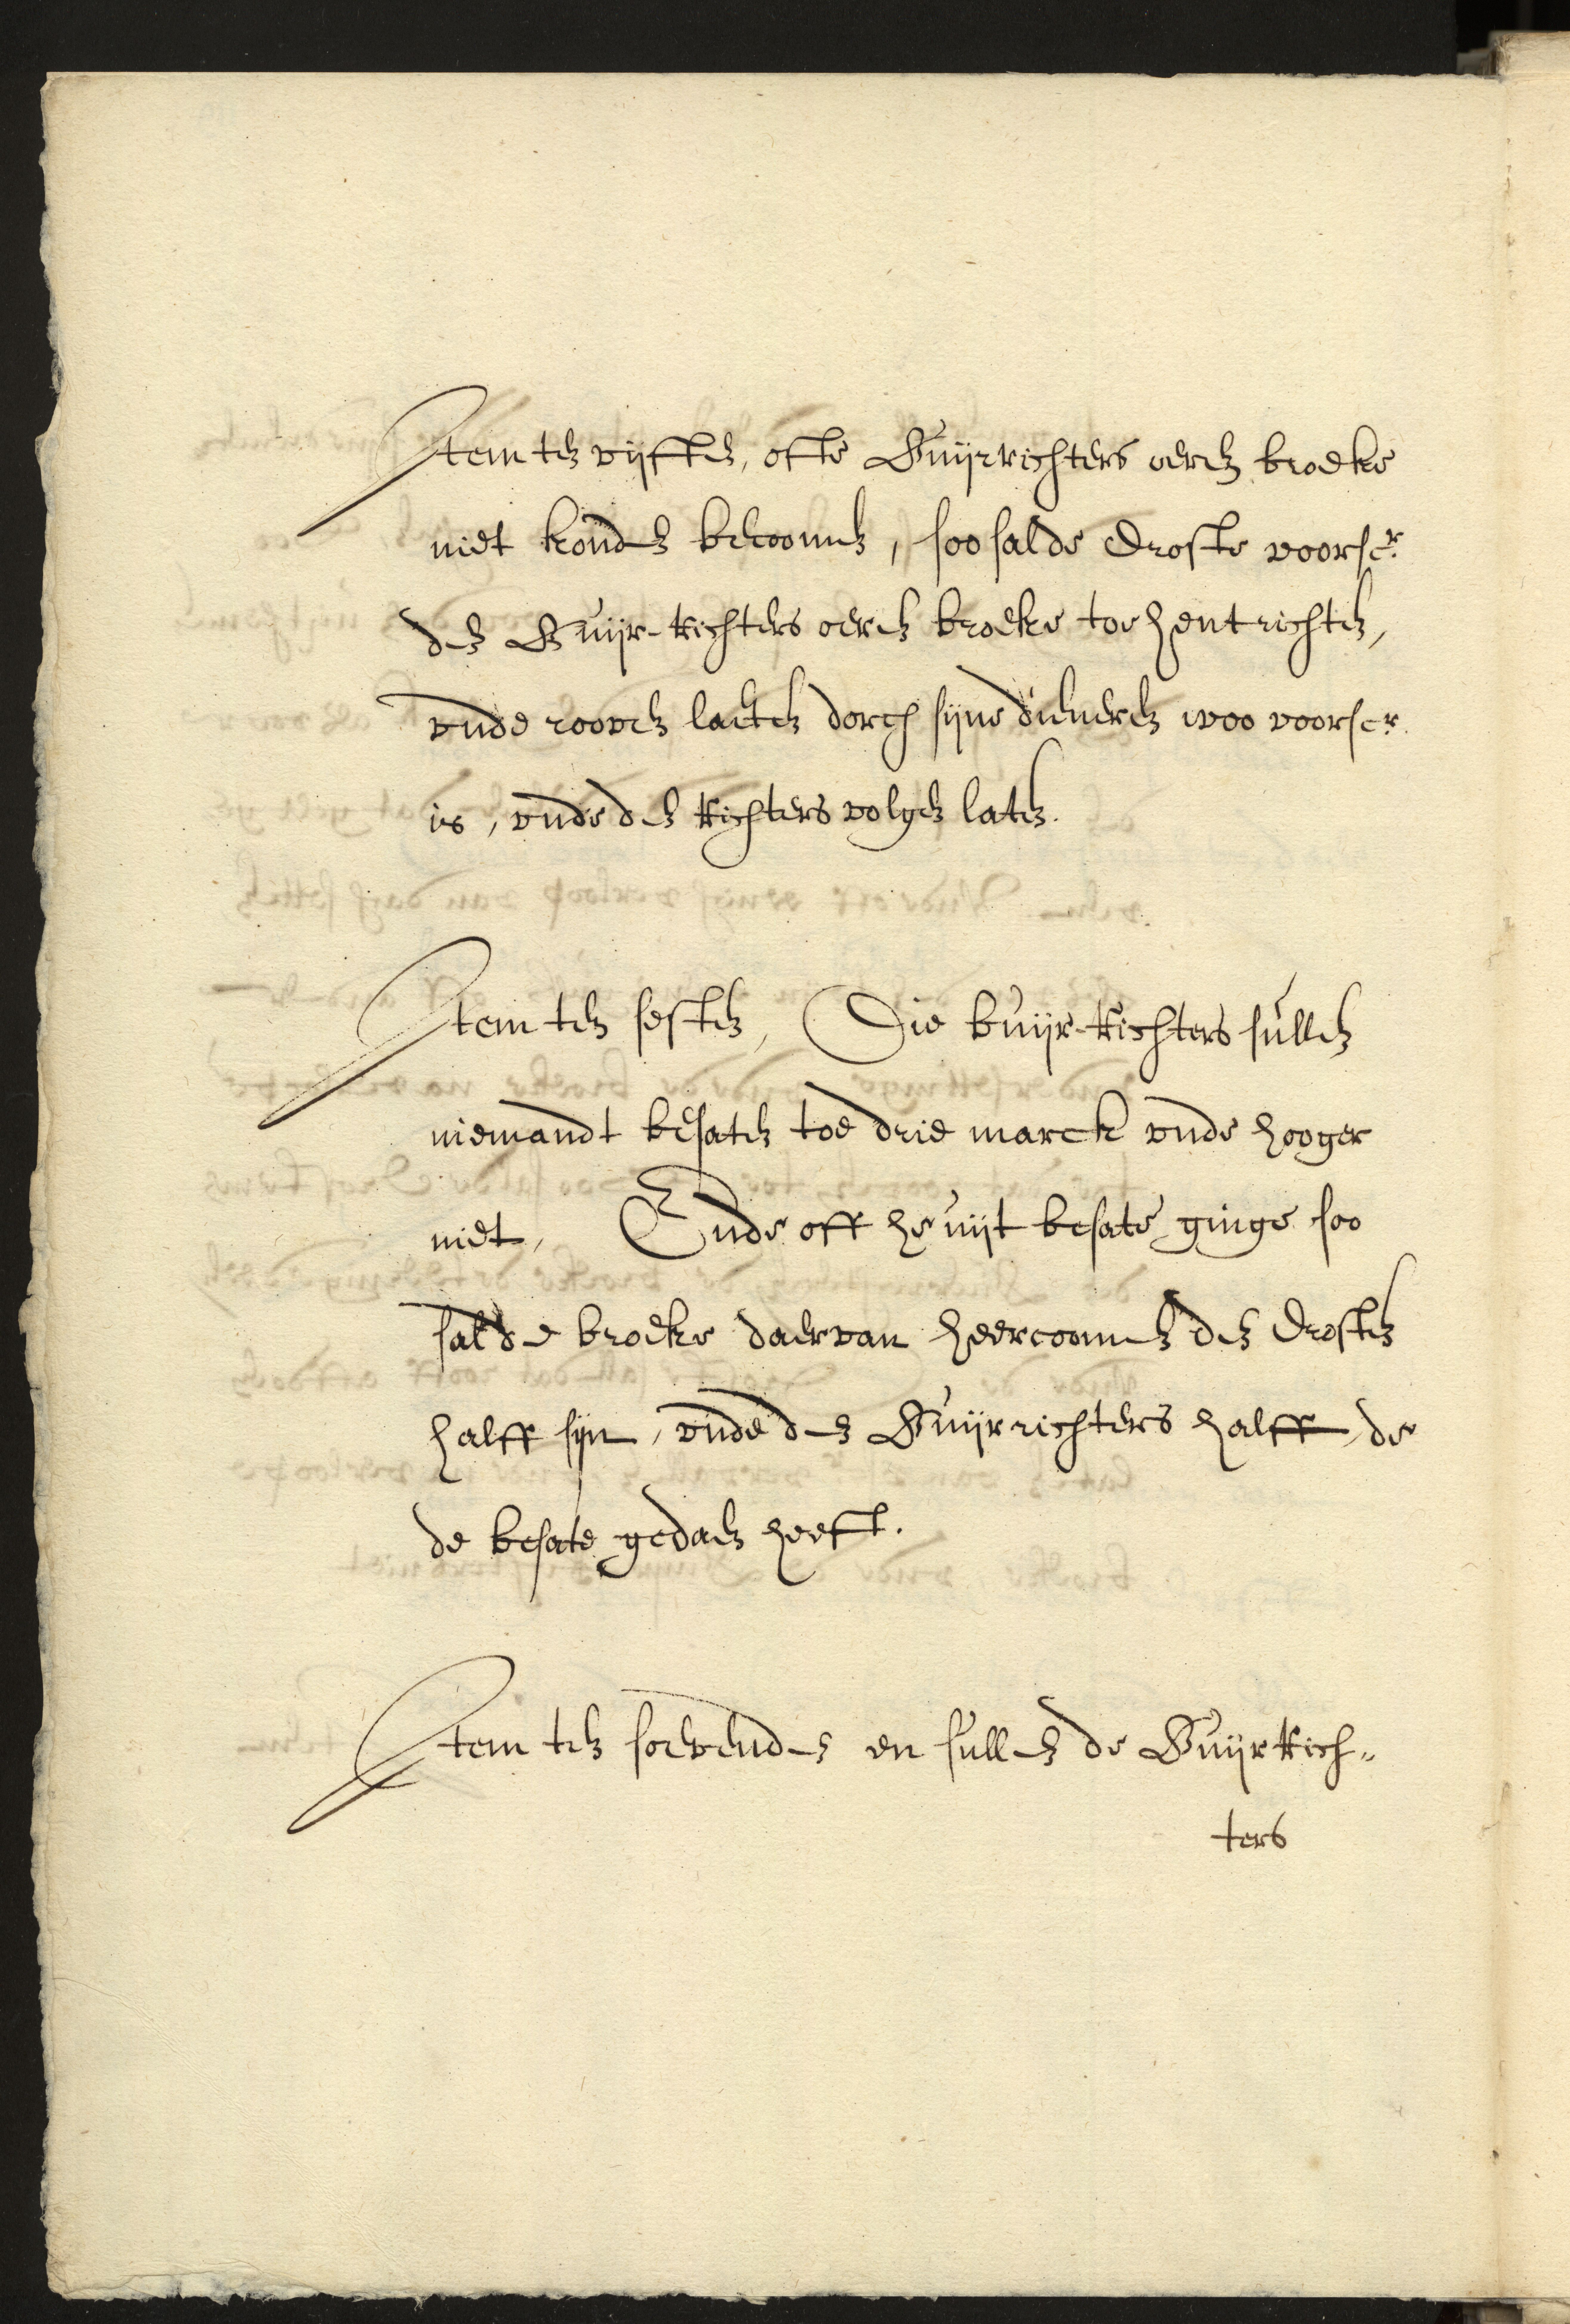 Item ten vijfften, offte Buijrrichters oeren broeke
niet konden becoomen, soo sal de Droste voorscr.
den Buijr-Richters oeren broeke toe hentrichten,
vnde rooven laeten dorch sijne dieneren woo voorscr.
is, vnde den Richters volgen laten.
Item ten sesten, Die buijr-Richters sullen
niemandt besaten toe drie marck vnde hooger
niet, Ende off he uijt besate ginge soo
sal de broeke daervan heercoomen den Drosten
halff sijn, vnde den Buijrrichters halff, de
de besate gedaen heeft.
Item ten soevenden en sullen de Buijr Rich„
ters